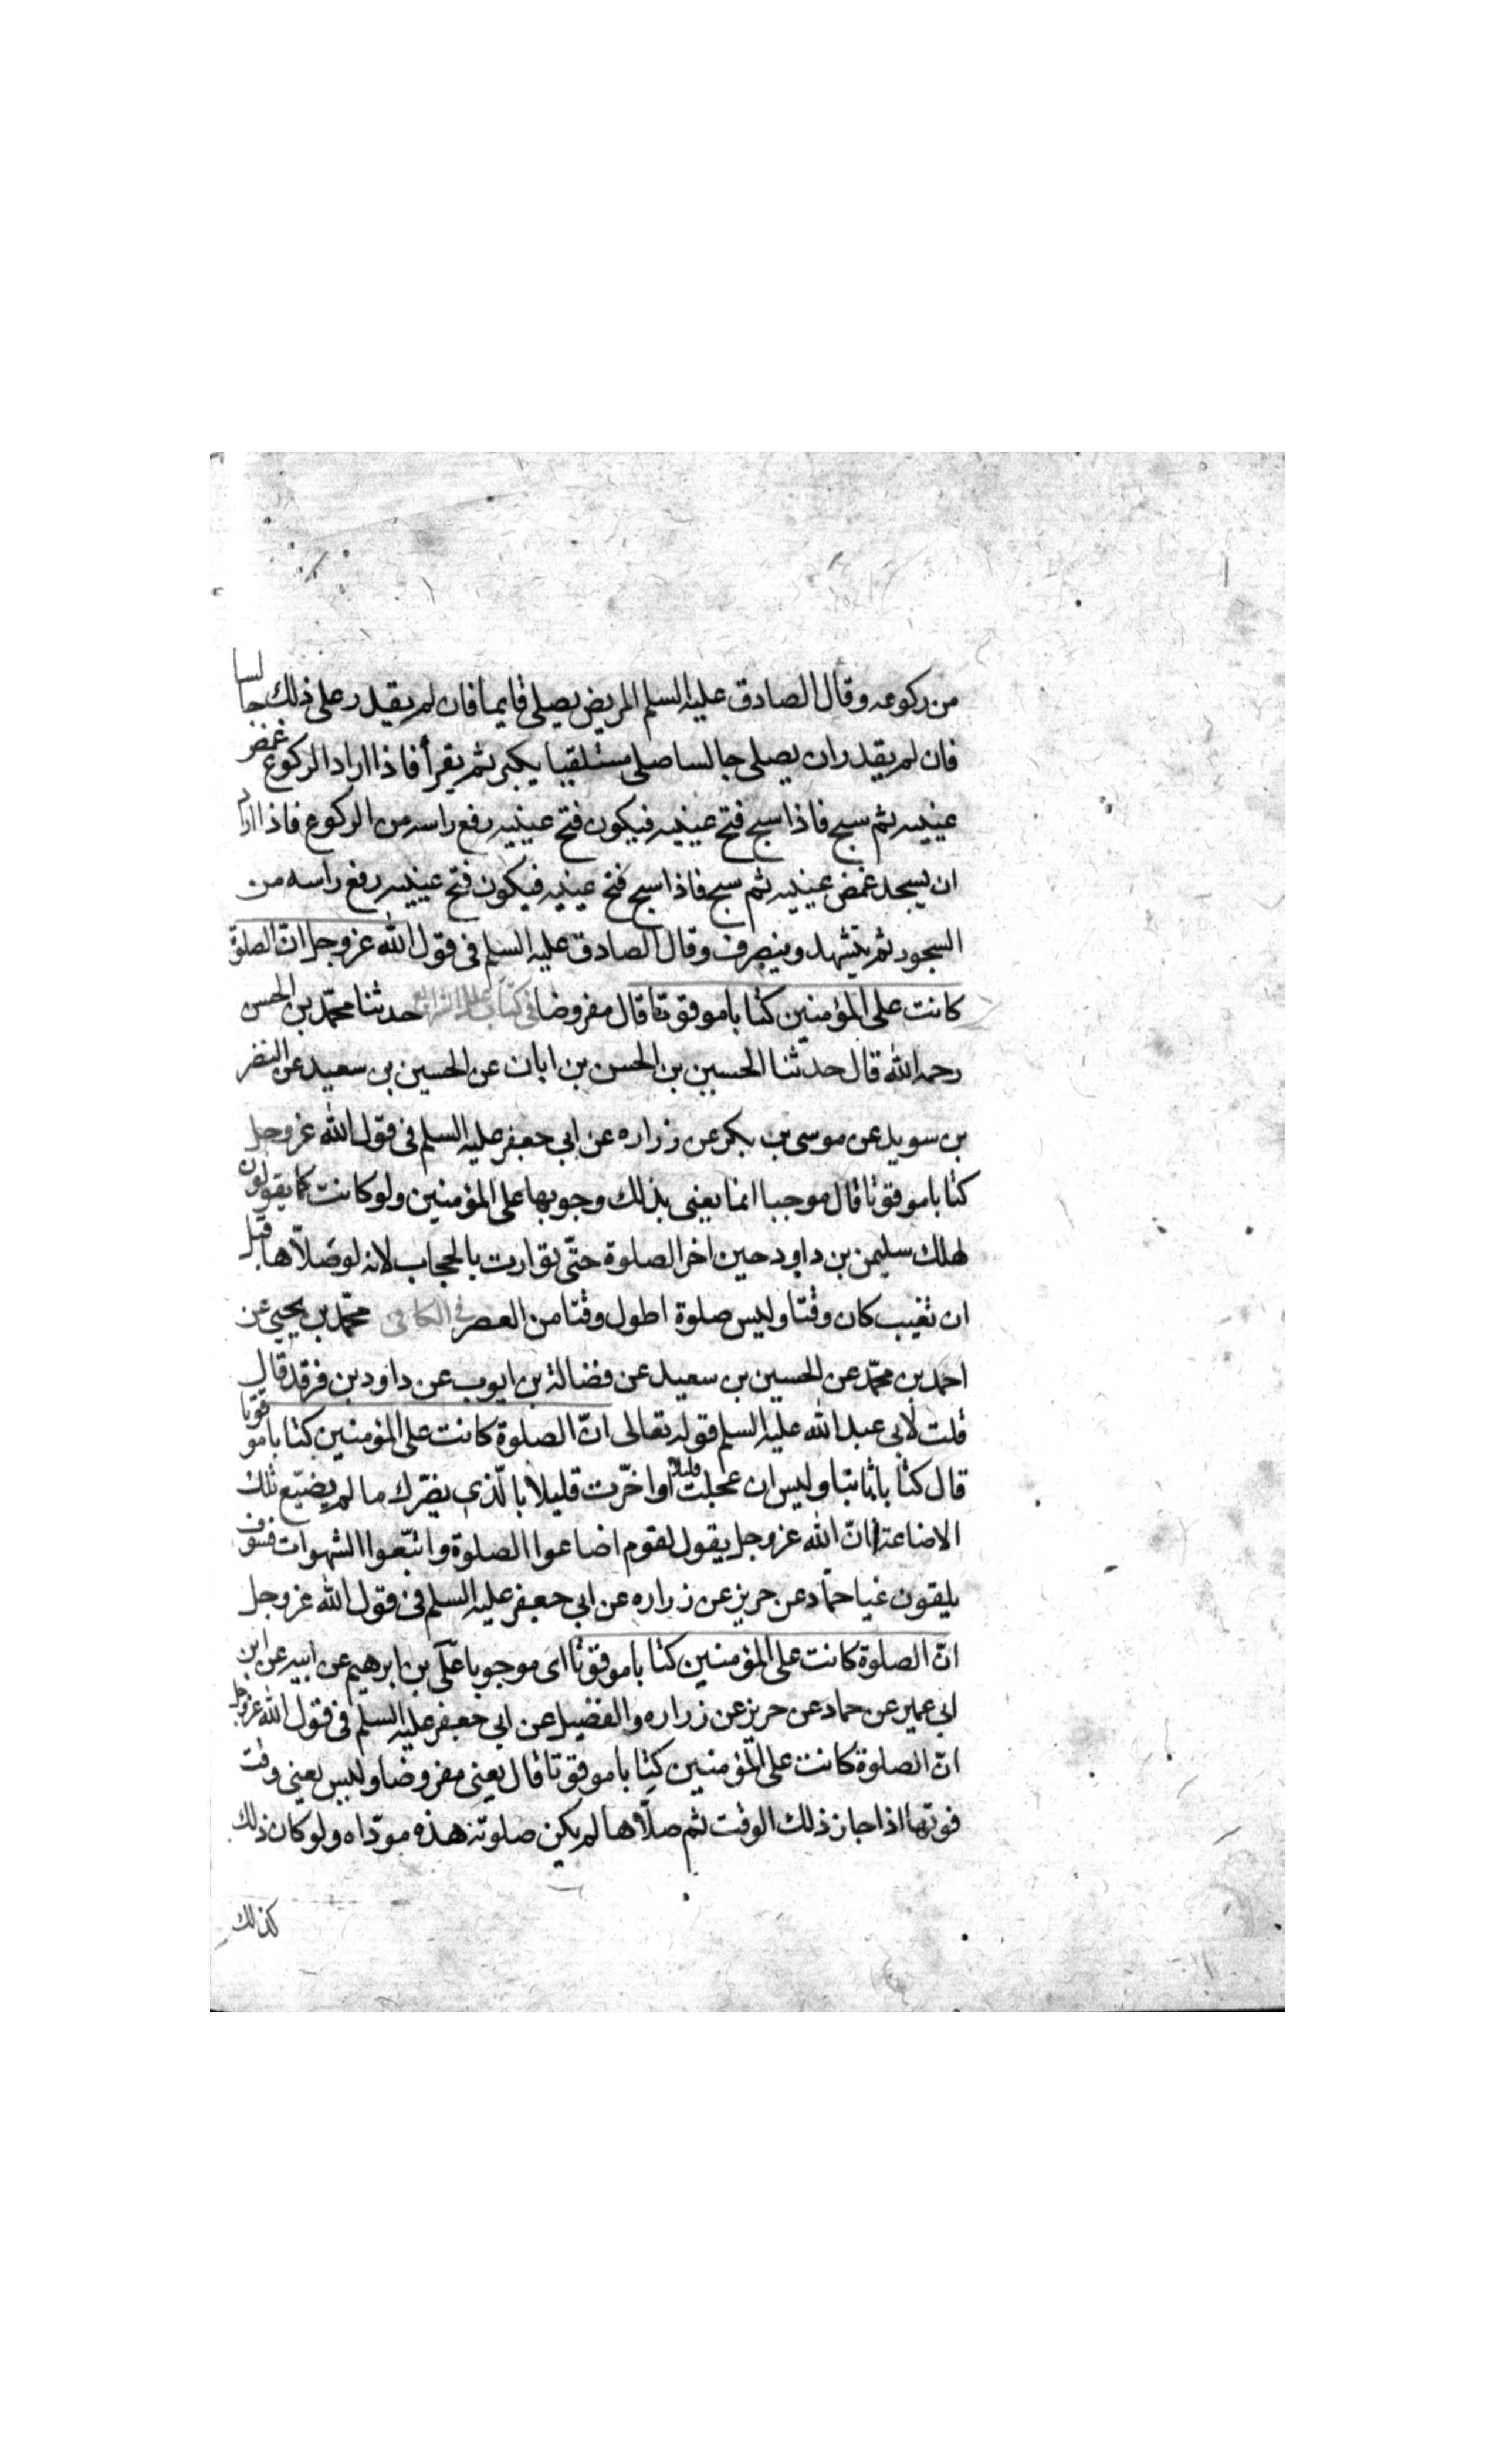 من ركوعه وقال الصادق عليه السلم المريض يصلى قايما فان لم يقدر على ذلك جالسا
فان لم يقدر ان يصلى جالسا صلى مستلقيا يكبر ثم يقرأ فاذا اراد الركوع غمض
عينيه ثم سبح فاذا سبح فتح عينيه فيكون فتح عينيه رفع راسه من الركوع فاذا اراد
ان يسجد غمض عينيه ثم سبح فاذا سبح فتح عينيه فيكون فتح عينيه رفع راسه من
السجود ثم يتشهد وينصرف وقال الصادق عليه السلم فى قول الله عز وجل ان الصلوة
كانت على المؤمنين كتابا موقوتا قال مفروضا فى كتاب علل الشرائع حدثنا محمّد بن الحسن
رحمه الله قال حدثنا الحسين بن الحسن بن ابان عن الحسين بن سعيد عن النضر
بن سويد عن موسى بن بكر عن زراره عن ابي جعفر عليه السلم فى قول الله عز وجل
كتابا موقوتا قال موجبا انما يعنى بذلك وجوبها على المؤمنين ولو كانت كما يقولون
لهلك سليمن بن داود حين اخر الصلوة حتّى توارت بالحجاب لانه لو صلّاها قبل
ان تغيب كان وقتا وليس صلوة اطول وقتا من العصر فى الكافى محمّد بن يحيى عن
احمد بن محمّد عن الحسين بن سعيد عن فضالة بن ايوب عن داود بن فرقد قال
قلت لأبى عبد الله عليه السلم قوله تعالى انّ الصلوة كانت على المؤمنين كتابا موقوتا
قال كتابا ثابتا وليس ان عجلت قليلا او اخّرت قليلا بالّذى يضرّك ما لم يضيّع تلك
الاضاعة انّ الله عز وجل يقول لقوم اضاعوا الصلوة واتبّعوا الشهوات فسوف
يلقون غيا حمّاد عن حريز عن زراره عن ابي جعفر عليه السلم فى قول الله عز وجل
انّ الصلوة كانت على المؤمنين كتابا موقوتا اى موجوبا علّى بن ابرهيم عن ابيه عن ابن
ابى عمير عن حماد عن حريز عن زراره والفضيل عن ابى جعفر عليه السلم فى قول الله عز وجل
انّ الصلوة كانت على المؤمنين كتابا موقوتا قال يعنى مفروضا وليس يعنى وقت
فوتها اذا جاز ذلك الوقت ثم صلّاها لم يكن صلوته هذه مودّاه ولو كان ذلك
كذلك